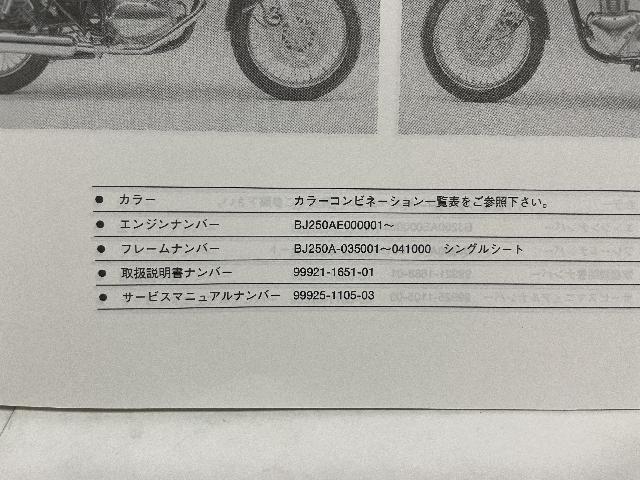 ● カラー カラーコンビネーション一覧表をご参照下さい。
● エンジンナンバー BJ250AE000001〜
● フレームナンバー BJ250A-035001〜041000 シングルシート
● 取扱説明書ナンバー 99921-1651-01
● サービスマニュアルナンバー 99925-1105-03